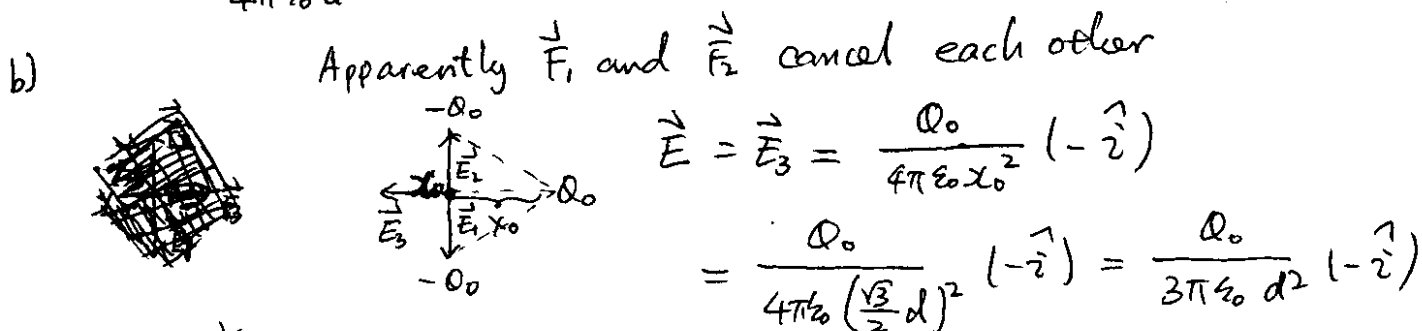 b)
Apparently F⃗₁ and F⃗₂ cancel each other
-Q₀
E⃗₂
x₀
Q₀
E⃗₃ E⃗₁ x₀
-Q₀
E⃗ = E⃗₃ = Q₀ / (4πε₀x₀²) (-î)
= Q₀ / (4πε₀ (√3/2 d)²) (-î) = Q₀ / (3πε₀ d²) (-î)